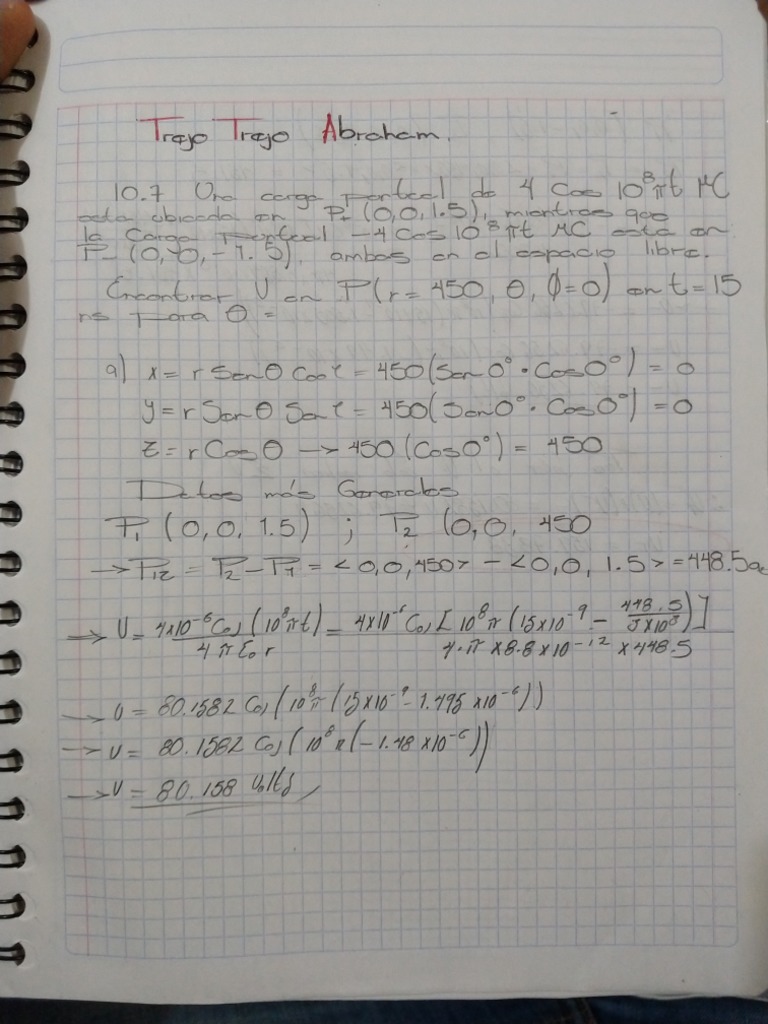 Trejo Trejo Abraham.
10.7 Una carga puntual de 4 Cos 10⁸πt μC
esta ubicada en P (0,0,1.5), mientras que
la Carga puntual -4 Cos 10⁸πt μC esta en
P- (0,0,-1.5), ambas en el espacio libre.
Encontrar V en P(r=450, θ, Ø=0) en t=15
ns para θ=
a) x = r Sen θ Cos φ = 450(Sen 0° · Cos 0°) = 0
y = r Sen θ Sen φ = 450(Sen 0° · Cos 0°) = 0
z = r Cos θ → 450 (Cos 0°) = 450
Datos más Generales
P₁ (0,0,1.5) ; P₂ (0,0,450
→ P₁₂ = P₂ - P₁ = <0,0,450> - <0,0,1.5> = 448.5
→ V = 4x10⁻⁶ Cos (10⁸πt) / 4πε₀r = 4x10⁻⁶ Cos [10⁸π (15x10⁻⁹ - 448.5 / 3x10⁸)] / 4·π x 8.8x10⁻¹² x 448.5
→ V = 80.1582 Cos (10⁸π (15x10⁻⁹ - 1.495x10⁻⁶))
→ V = 80.1582 Cos (10⁸π (-1.48x10⁻⁶))
→ V = 80.158 Volts